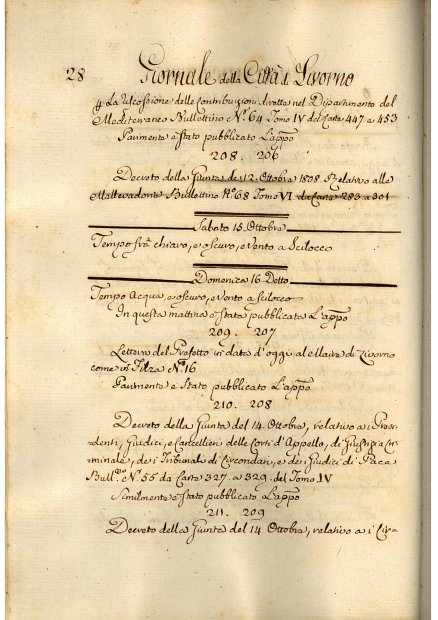 28 Giornale della Città di Livorno
p. La Riscossione delle Contribuzioni dirette nel Dipartimento del
Mediterraneo Bullettino Nº 64 Tomo IV da Carta 447 a 453
Parimente è stato pubblicato L'appº
208. 206
Decreto della Giunta de 12. Ottobre 1808. Relativo alle
Mallevadorie Bullettino Nº 68 Tomo VI da Carta 283 a 301
Sabato 15. Ottobre
Tempo frà chiaro, e oscuro, e vento a Scilocco
Domenica 16. Detto
Tempo Acqua, e oscuro, e Vento a Scilocco
In questa mattina è stata pubblicata L'appº
209. 207
Lettera del Prefetto in data d'oggi al Maire di Livorno
come in Filza Nº 16
Parimente è Stato pubblicato L'appº
210. 208
Decreto della Giunta del 14. Ottobre, relativo ai Presi-
denti, Giudici, e Cancellieri delle Corti d'Appello, di Giustizia Cri-
minale, de i Tribunali di Circondari, e dei Giudici di Pace
Bull.no Nº 55 da Carta 327. a 329. del Tomo IV
Similmente è stato pubblicato L'appº
211. 209
Decreto della Giunta del 14 Ottobre, relativo a i Cir-